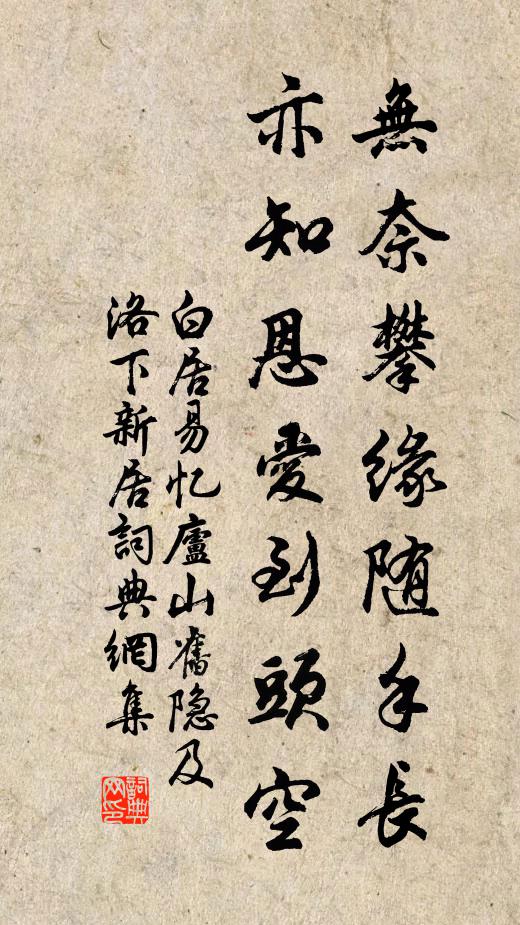 無奈攀缘随手長
亦知恩愛到頭空
白居易忆廬山舊隐及
洛下新居詞典網集
詞典
网印